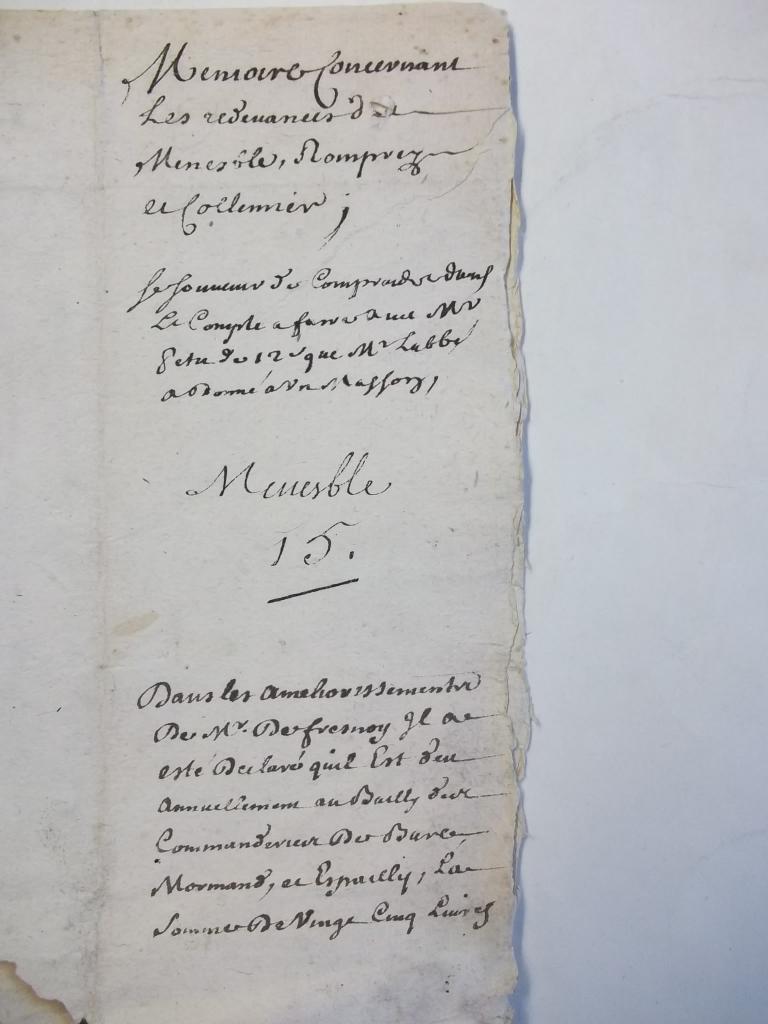 Memoire Concernant
Les redevances de
Menesble, Romprey
et Collemier;
se souvenir de Comprendre dans
Le Compte a faire avec Mr
petu de 12 que Mr Labbé
a donné a un Masson,
Menesble
15.
Dans les ameliorissements
De Mr. Defresnoy Il a
esté Declaré quil Est deu
annuellement au Bailly des
Commanderies De Bure
Mormand, et Espailly, La
somme De Vingt Cinq Livres